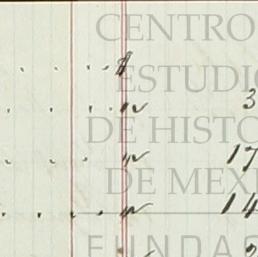 CENTRO
. . . $ ESTUDIO
. . . " 3
DE HISTO
. . . " 17
DE MEX
. . . " 14
FUNDAC